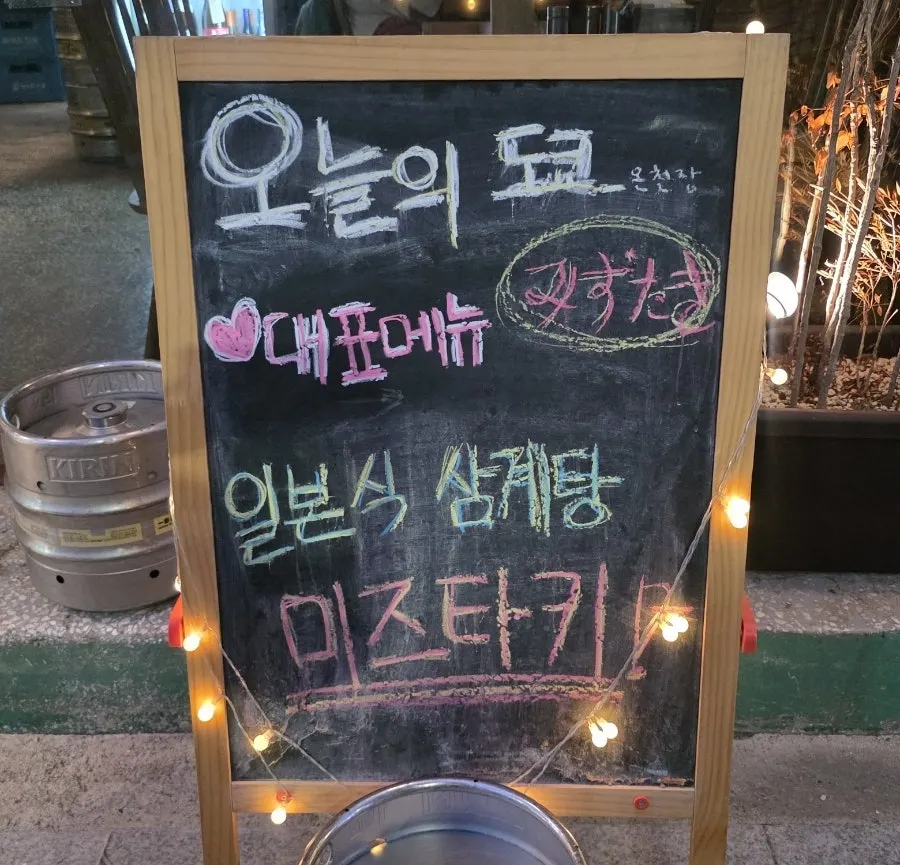 오늘의 도쿄 온천장
みずたき
대표메뉴
일본식 삼계탕
미즈타키!
KIRIN